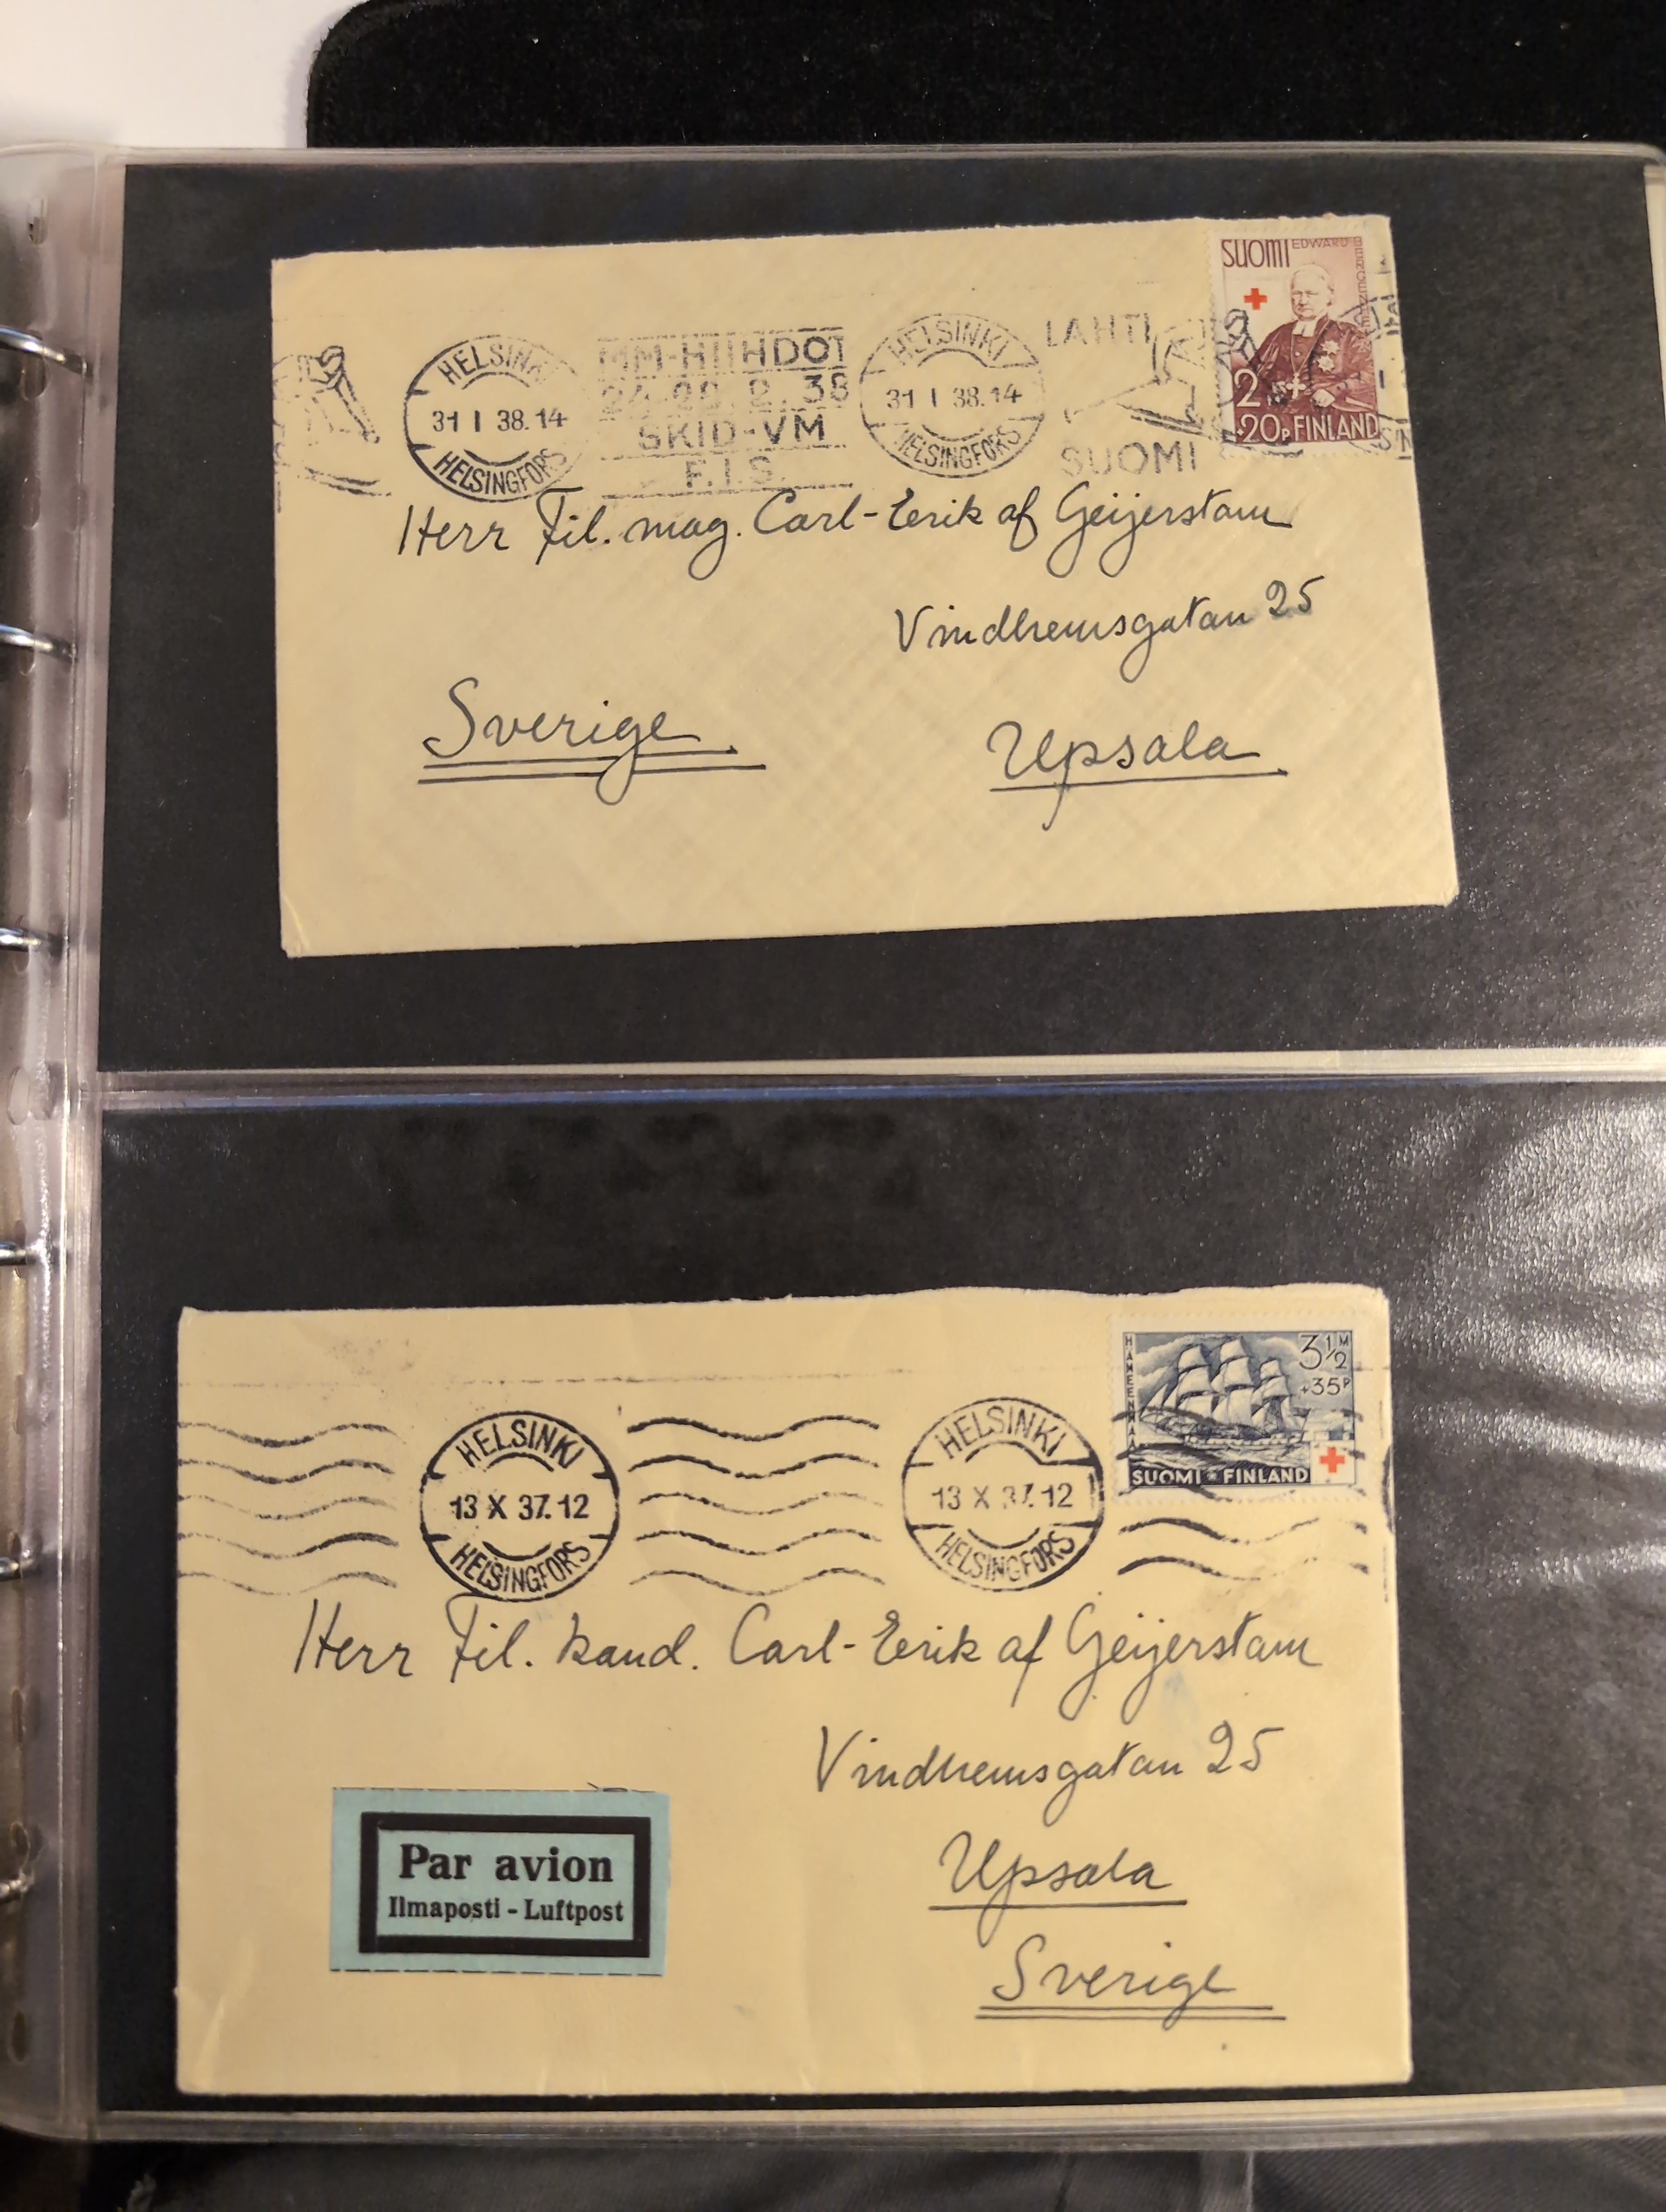 SUOMI EDWARD BERGENHEIM
2 M
+20P FINLAND
HELSINKI
31 I 38.14
HELSINGFORS
MM-HIIHDOT
24-28.2.38
SKID-VM
F.I.S.
HELSINKI
31 I 38.14
HELSINGFORS
LAHTI
SUOMI
Herr Fil. mag. Carl-Eerik af Geijerstam
Vindhemsgatan 25
Sverige.
Upsala.
HÄMEENMAA
3½ M
+35P
SUOMI FINLAND
HELSINKI
13 X 37.12
HELSINGFORS
HELSINKI
13 X 37.12
HELSINGFORS
Herr Fil. kand. Carl-Eerik af Geijerstam
Vindhemsgatan 25
Upsala
Sverige
Par avion
Ilmaposti - Luftpost